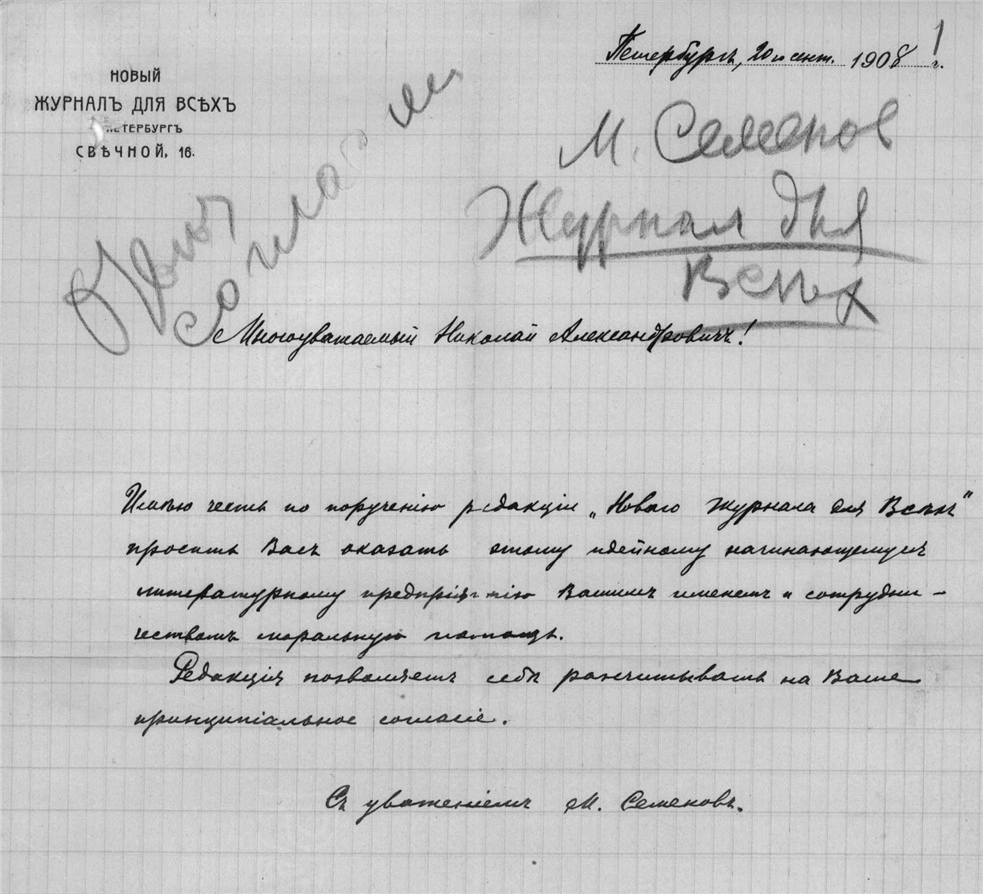 Петербургъ, 20го сент. 1908 г.
1
НОВЫЙ
ЖУРНАЛЪ ДЛЯ ВСѢХЪ
ПЕТЕРБУРГЪ
СВѢЧНОЙ, 16.
М. Семенов
Журнал для
Всѣх
согласие
Многоуважаемый Николай Александровичъ!
Имѣю честь по порученію редакціи „Новаго Журнала для Всѣхъ"
просить Васъ оказать этому идейному начинающемуся
литературному предпріятію Вашимъ именемъ и сотрудни-
чествомъ моральную помощь.
Редакція позволяетъ себѣ расчитывать на Ваше
принципіальное согласіе.
Съ уваженіемъ М. Семеновъ.